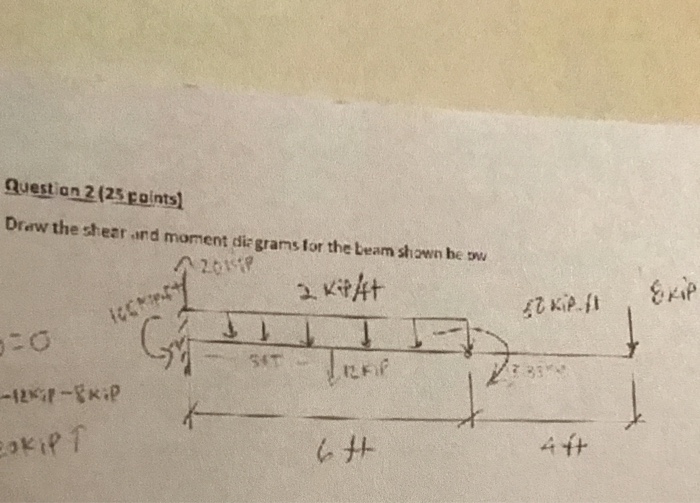 Question 2 (25 points)
Draw the shear and moment diagrams for the beam shown below
20 KiP
2 KiP/ft
8 KiP
KiP.ft
=0
12 KiP
-12KiP-8KiP
20KiP ↑
6 ft
4 ft